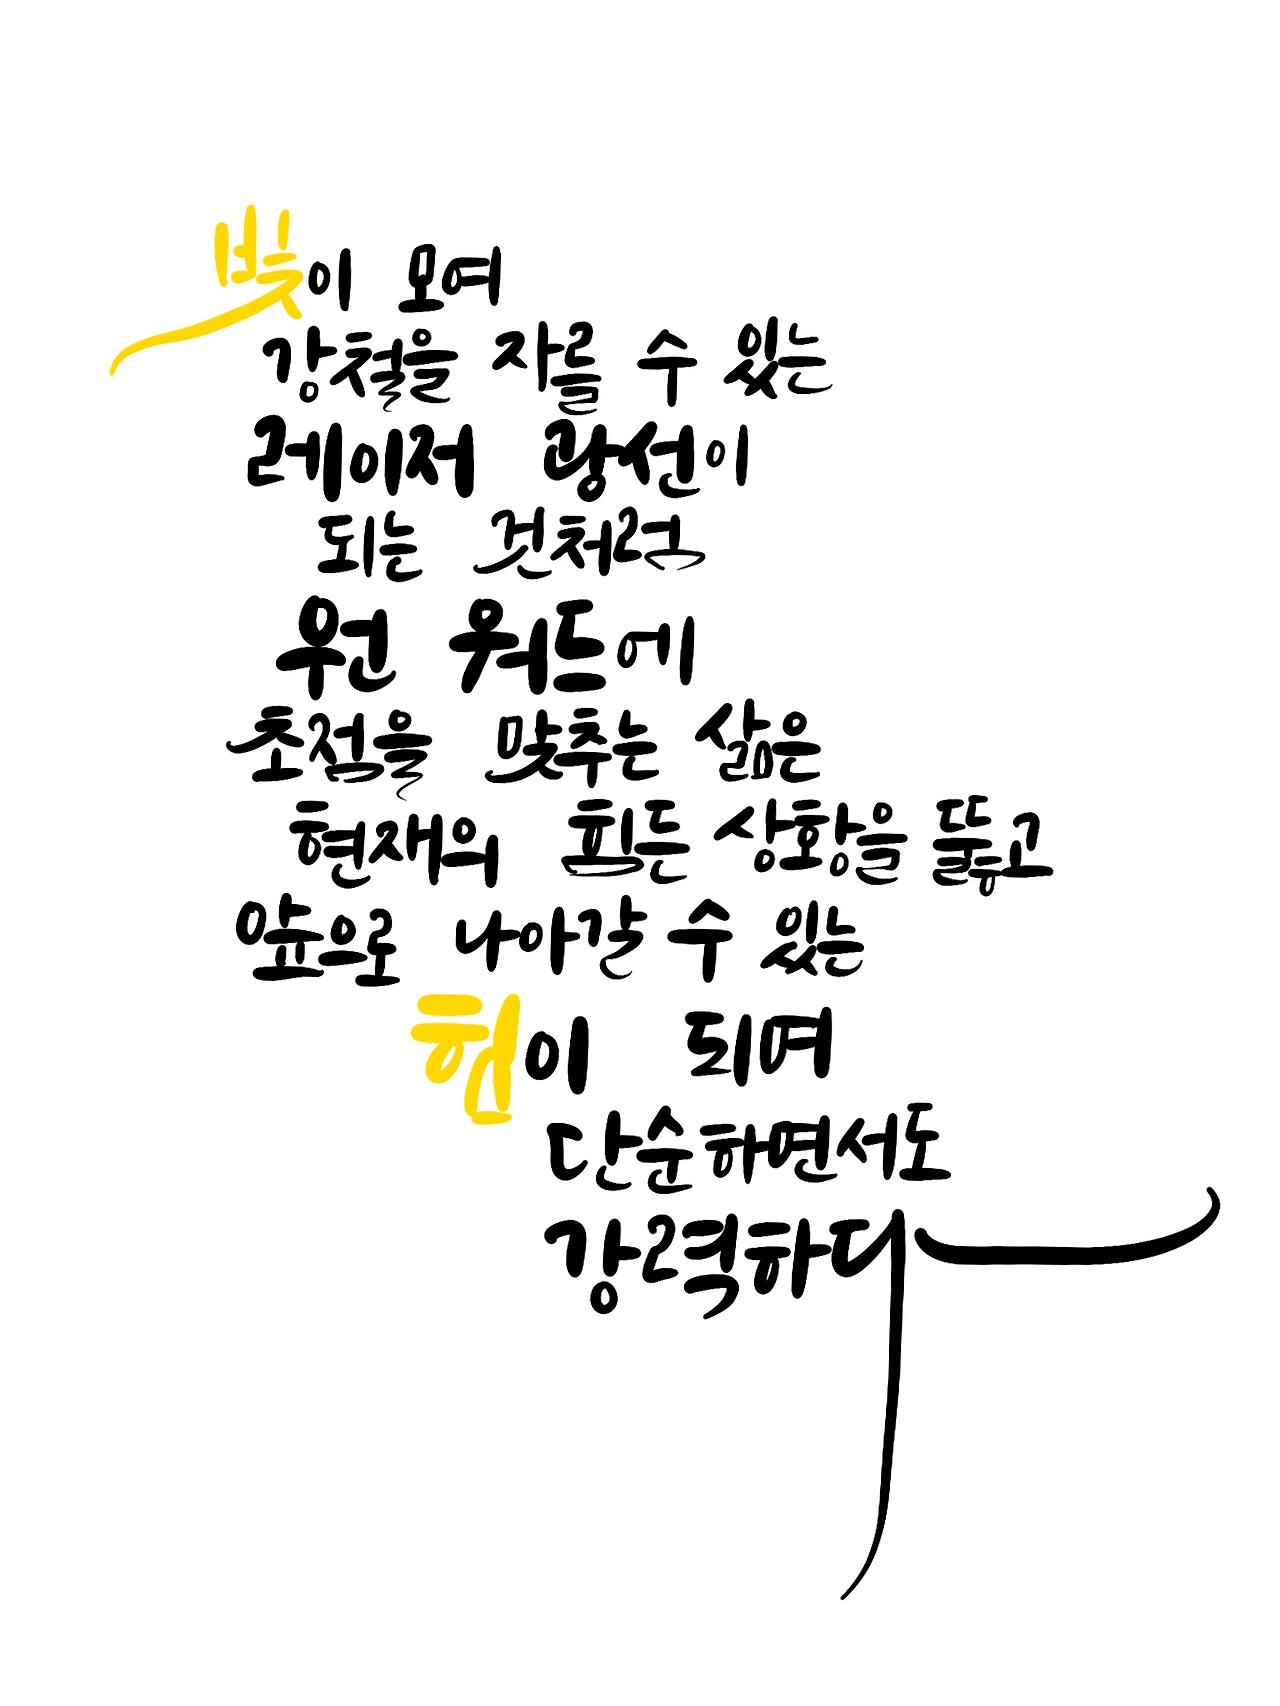 빛이 모여
강철을 자를 수 있는
레이저 광선이
되는 것처럼
원 워드에
초점을 맞추는 삶은
현재의 힘든 상황을 뚫고
앞으로 나아갈 수 있는
힘이 되며
단순하면서도
강력하다